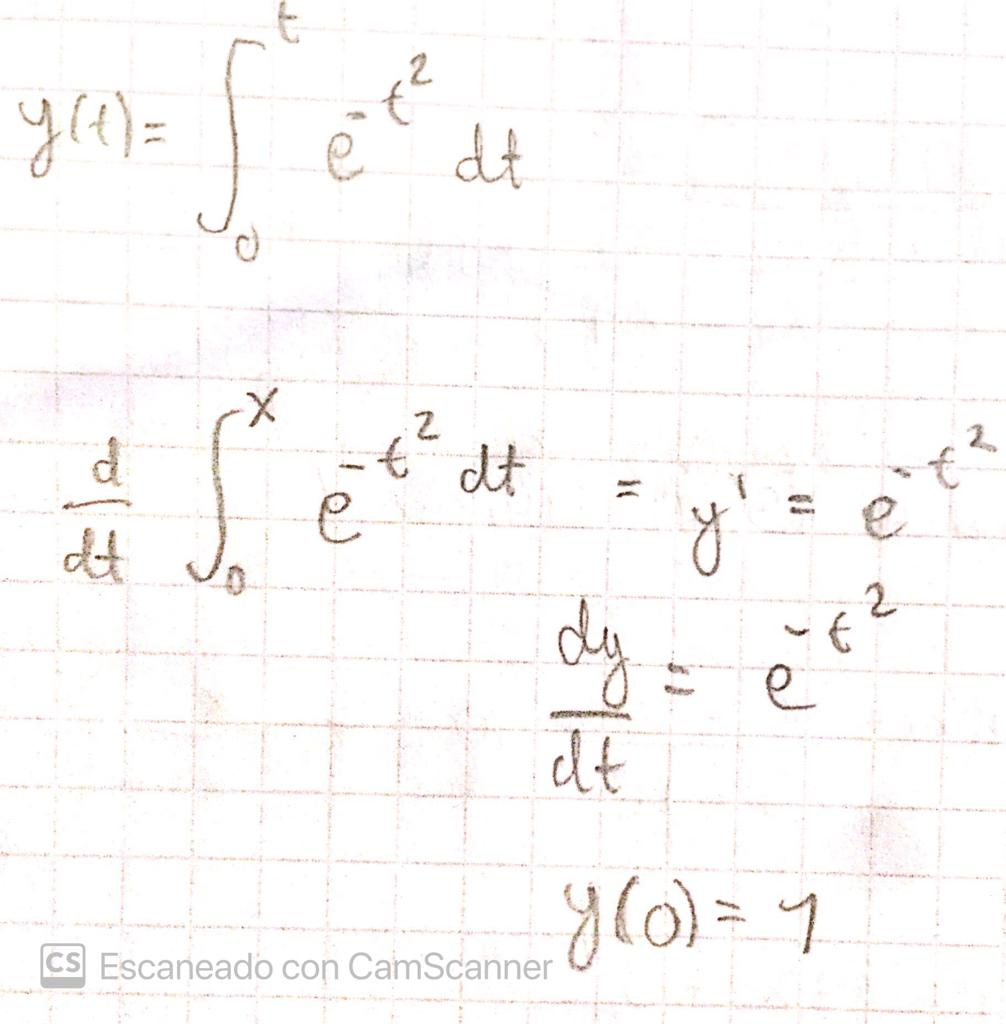 y(t) = ∫₀ᵗ e^{-t²} dt
d/dt ∫₀ˣ e^{-t²} dt = y' = e^{-t²}
dy/dt = e^{-t²}
y(0) = 1
CS Escaneado con CamScanner